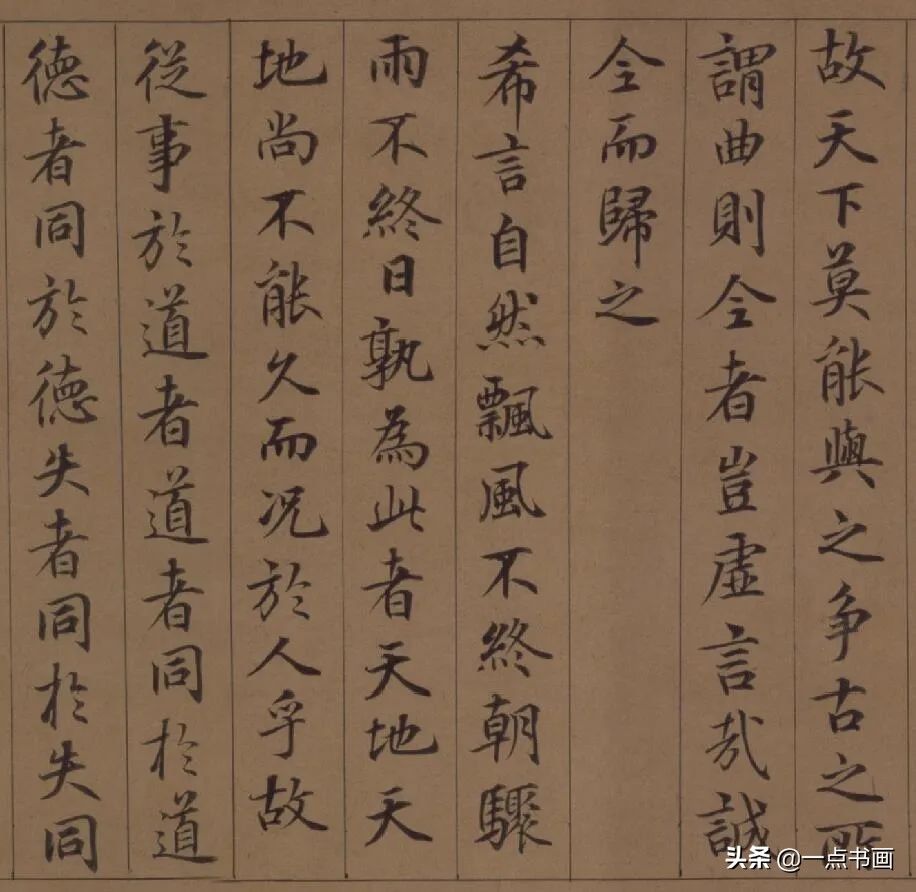 故天下莫能與之争古之所
謂曲則全者豈虚言哉誠
全而歸之
希言自然飄風不終朝驟
雨不終日孰為此者天地天
地尚不能久而况於人乎故
從事於道者道者同於道
德者同於德失者同於失同
头条 @一点书画